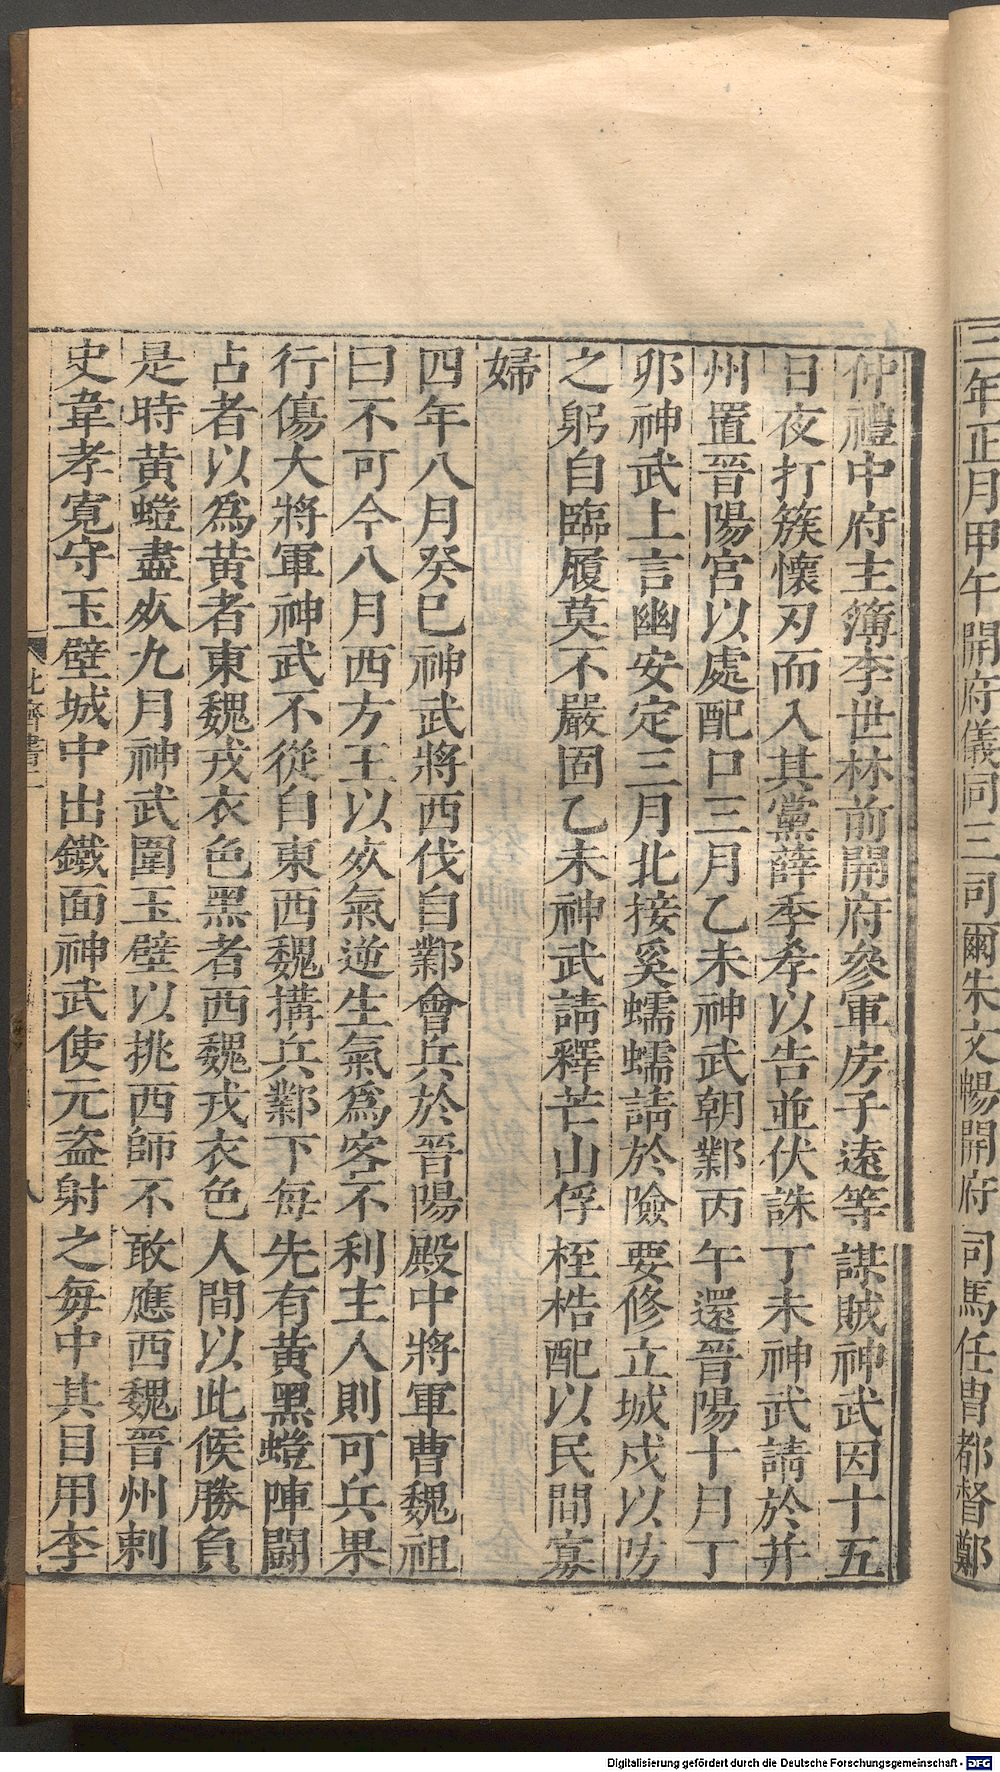 三年正月甲午開府儀同三司爾朱文暢開府司馬任胄都督鄭
仲禮中府主簿李世林前開府參軍房子遠等謀賊神武因十五
日夜打簇懷刃而入其黨薛季孝以告並伏誅丁未神武請於并
州置晉陽宮以處配口三月乙未神武朝鄴丙午還晉陽十月丁
夘神武上言幽安定三月北接奚蠕蠕請於險要修立城戍以防
之躬自臨履莫不嚴固乙未神武請釋芒山俘桎梏配以民間寡
婦
四年八月癸巳神武將西伐自鄴會兵於晉陽殿中將軍曹魏祖
曰不可今八月西方王以死氣逆生氣爲客不利主入則可兵果
行傷大將軍神武不從自東西魏搆兵鄴下每先有黃黑螘陣鬭
占者以爲黃者東魏戎衣色黑者西魏戎衣色人間以此候勝負
是時黃螘盡死九月神武圍玉壁以挑西師不敢應西魏晉州刺
史韋孝寬守玉壁城中出鐵面神武使元盗射之每中其目用李
北齊書二
八
Digitalisierung gefördert durch die Deutsche Forschungsgemeinschaft - DFG